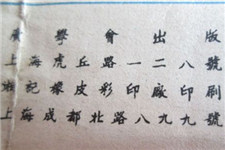 廣學會出版
上海虎丘路一二八號
記橡皮彩印廠印刷
上海成都北路八九九號